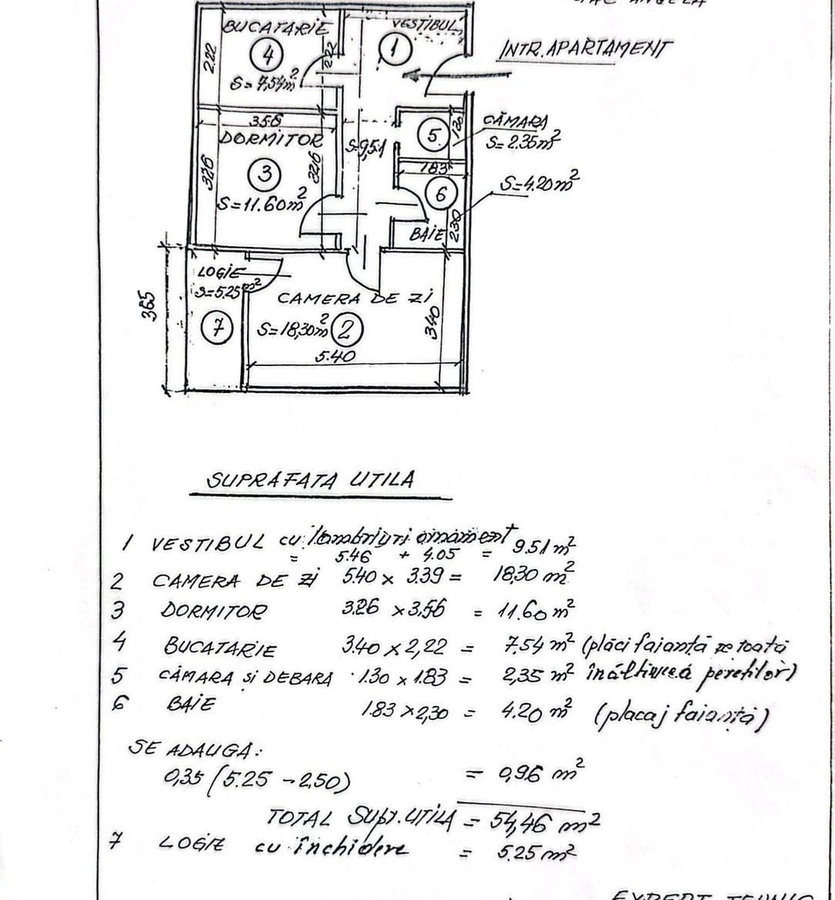 ANGELA
BUCATARIE
4
S=7,54m²
2.22
222
VESTIBUL
1
INTR. APARTAMENT
3.56
DORMITOR
3
S=11.60m²
326
326
S=9,51
5
CĂMARA
S=2.35m²
183
6
S=4.20m²
BAIE
230
LOGIE
S=5.25m²
7
365
CAMERA DE ZI
S=18,30m² 2
5.40
340
SUPRAFATA UTILA
1 VESTIBUL cu lambriuri ornament
= 5.46 + 4.05 = 9.51 m²
2 CAMERA DE ZI 5.40 x 3.39 = 18.30 m²
3 DORMITOR 3.26 x 3.56 = 11.60 m²
4 BUCATARIE 3.40 x 2,22 = 7.54 m² (plăci faianță pe toată
5 CĂMARA și DEBARA 1.30 x 1.83 = 2,35 m² înălțimea pereților)
6 BAIE 1.83 x 2,30 = 4.20 m² (placaj faianță)
SE ADAUGA:
0,35 (5.25 - 2,50) = 0,96 m²
TOTAL Supr. UTILA = 54,46 m²
7 LOGIE cu închidere = 5.25 m²
EXPERT TEHNIC